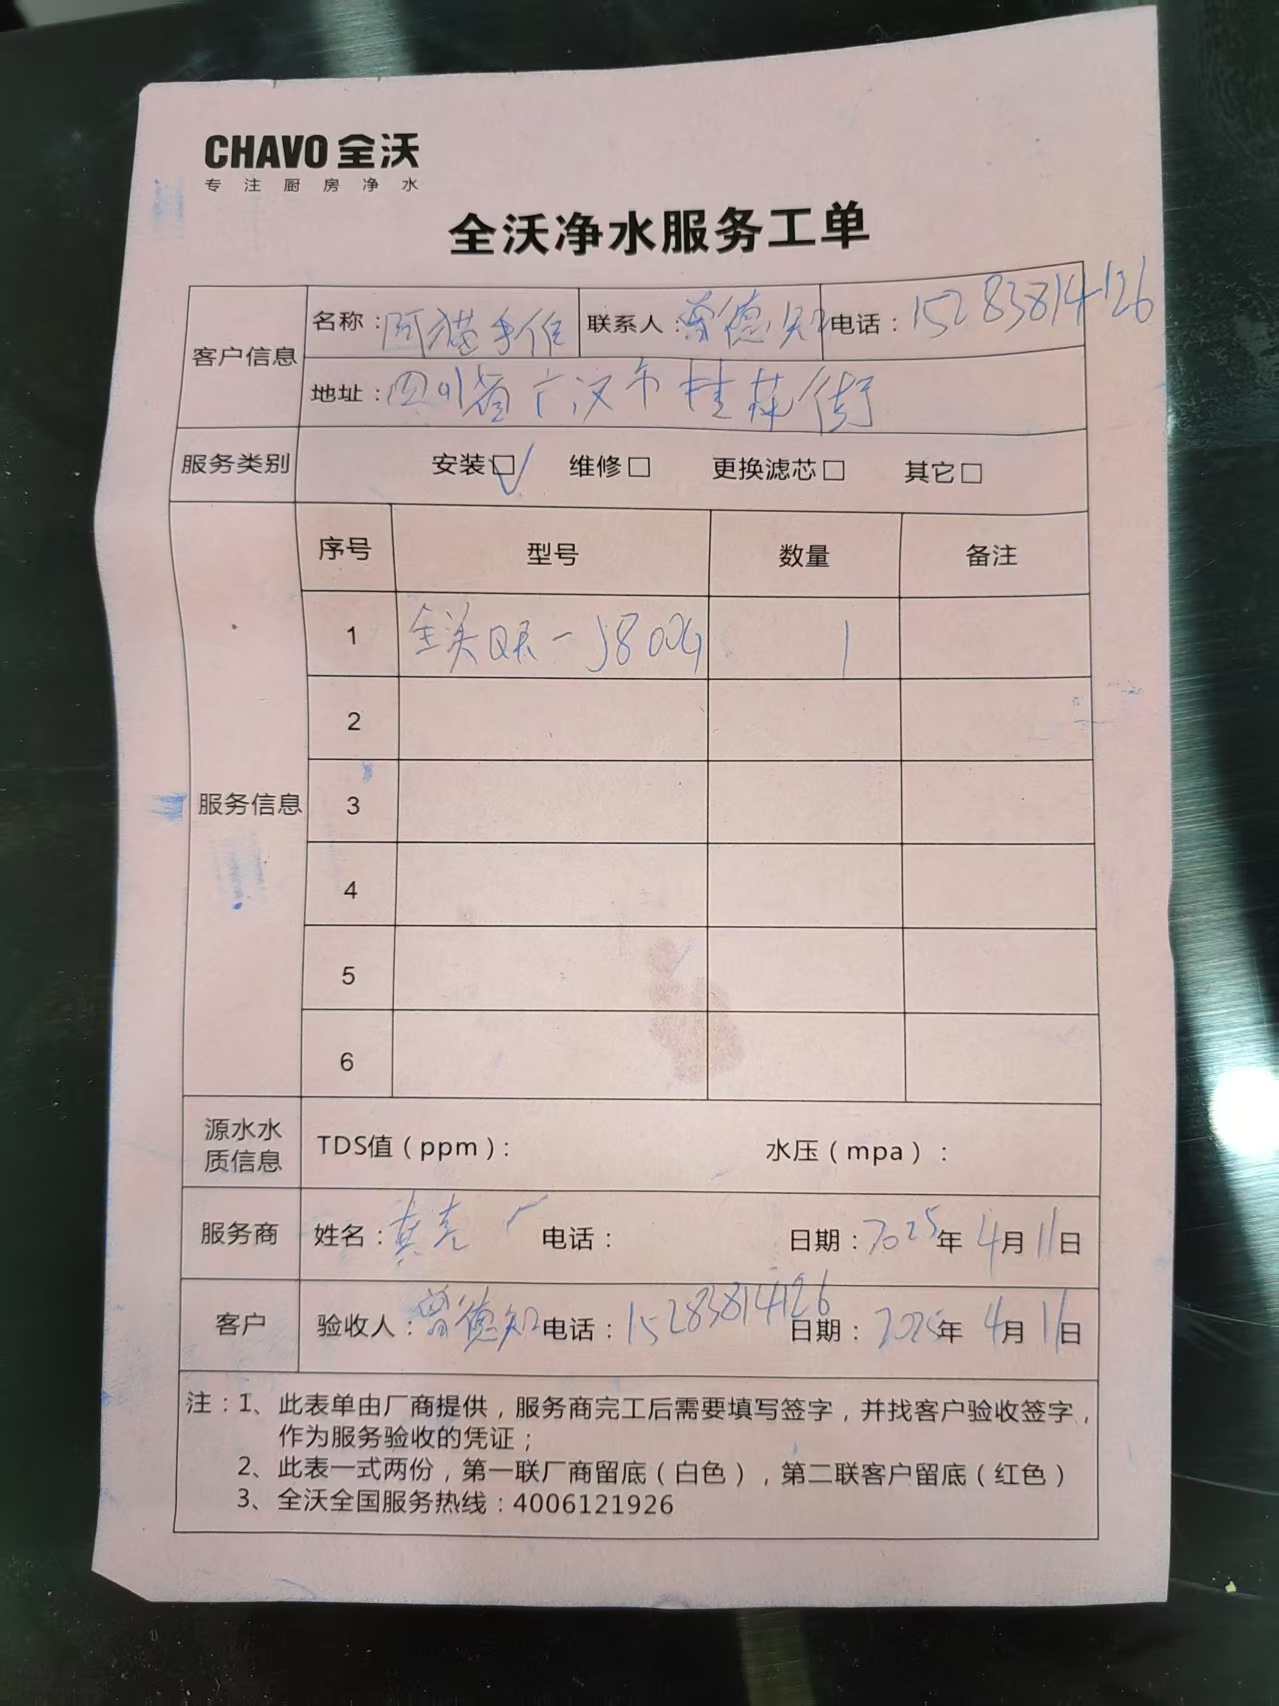 CHAVO 全沃
专注厨房净水
全沃净水服务工单
客户信息
名称：阿猫手作 联系人：曾德知 电话：15283814126
地址：四川省广汉市桂花街
服务类别 安装☑ 维修□ 更换滤芯□ 其它□
服务信息
序号 型号 数量 备注
1 J800G 1
2
3
4
5
6
源水水质信息 TDS值（ppm）： 水压（mpa）：
服务商 姓名： 电话： 日期：2025年4月11日
客户 验收人：曾德知 电话：15283814126 日期：2025年4月11日
注：1、此表单由厂商提供，服务商完工后需要填写签字，并找客户验收签字，
作为服务验收的凭证；
2、此表一式两份，第一联厂商留底（白色），第二联客户留底（红色）
3、全沃全国服务热线：4006121926